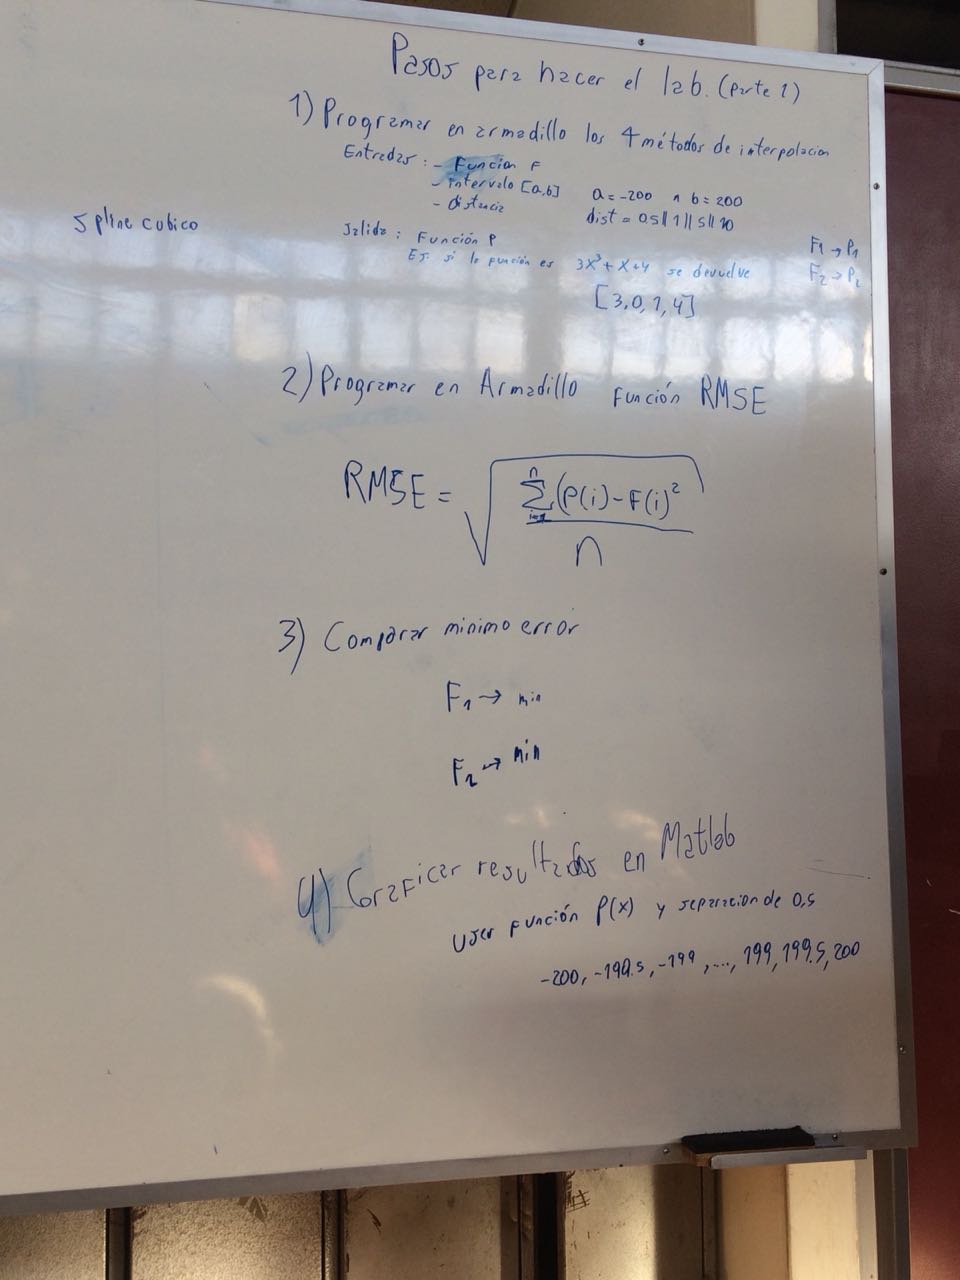 Pasos para hacer el lab. (parte 1)
1) Programar en armadillo los 4 métodos de interpolacion
Entradas : - Función F
- intervalo [a,b] a = -200 ∧ b = 200
- distancia dist = 0.5 || 1 || 5 || 10
Spline cubico
Salida : Función P F1 → P1
Ej. si la función es 3x³ + x + 4 se devuelve F2 → P2
[3, 0, 1, 4]
2) Programar en Armadillo Función RMSE
RMSE = √(∑ⁿᵢ₌₁ (P(i) - F(i)² / n)
3) Comparar minimo error
F1 → min
F2 → min
4) Graficar resultados en Matlab
User función P(x) y separacion de 0,5
-200, -199.5, -199, ..., 199, 199.5, 200